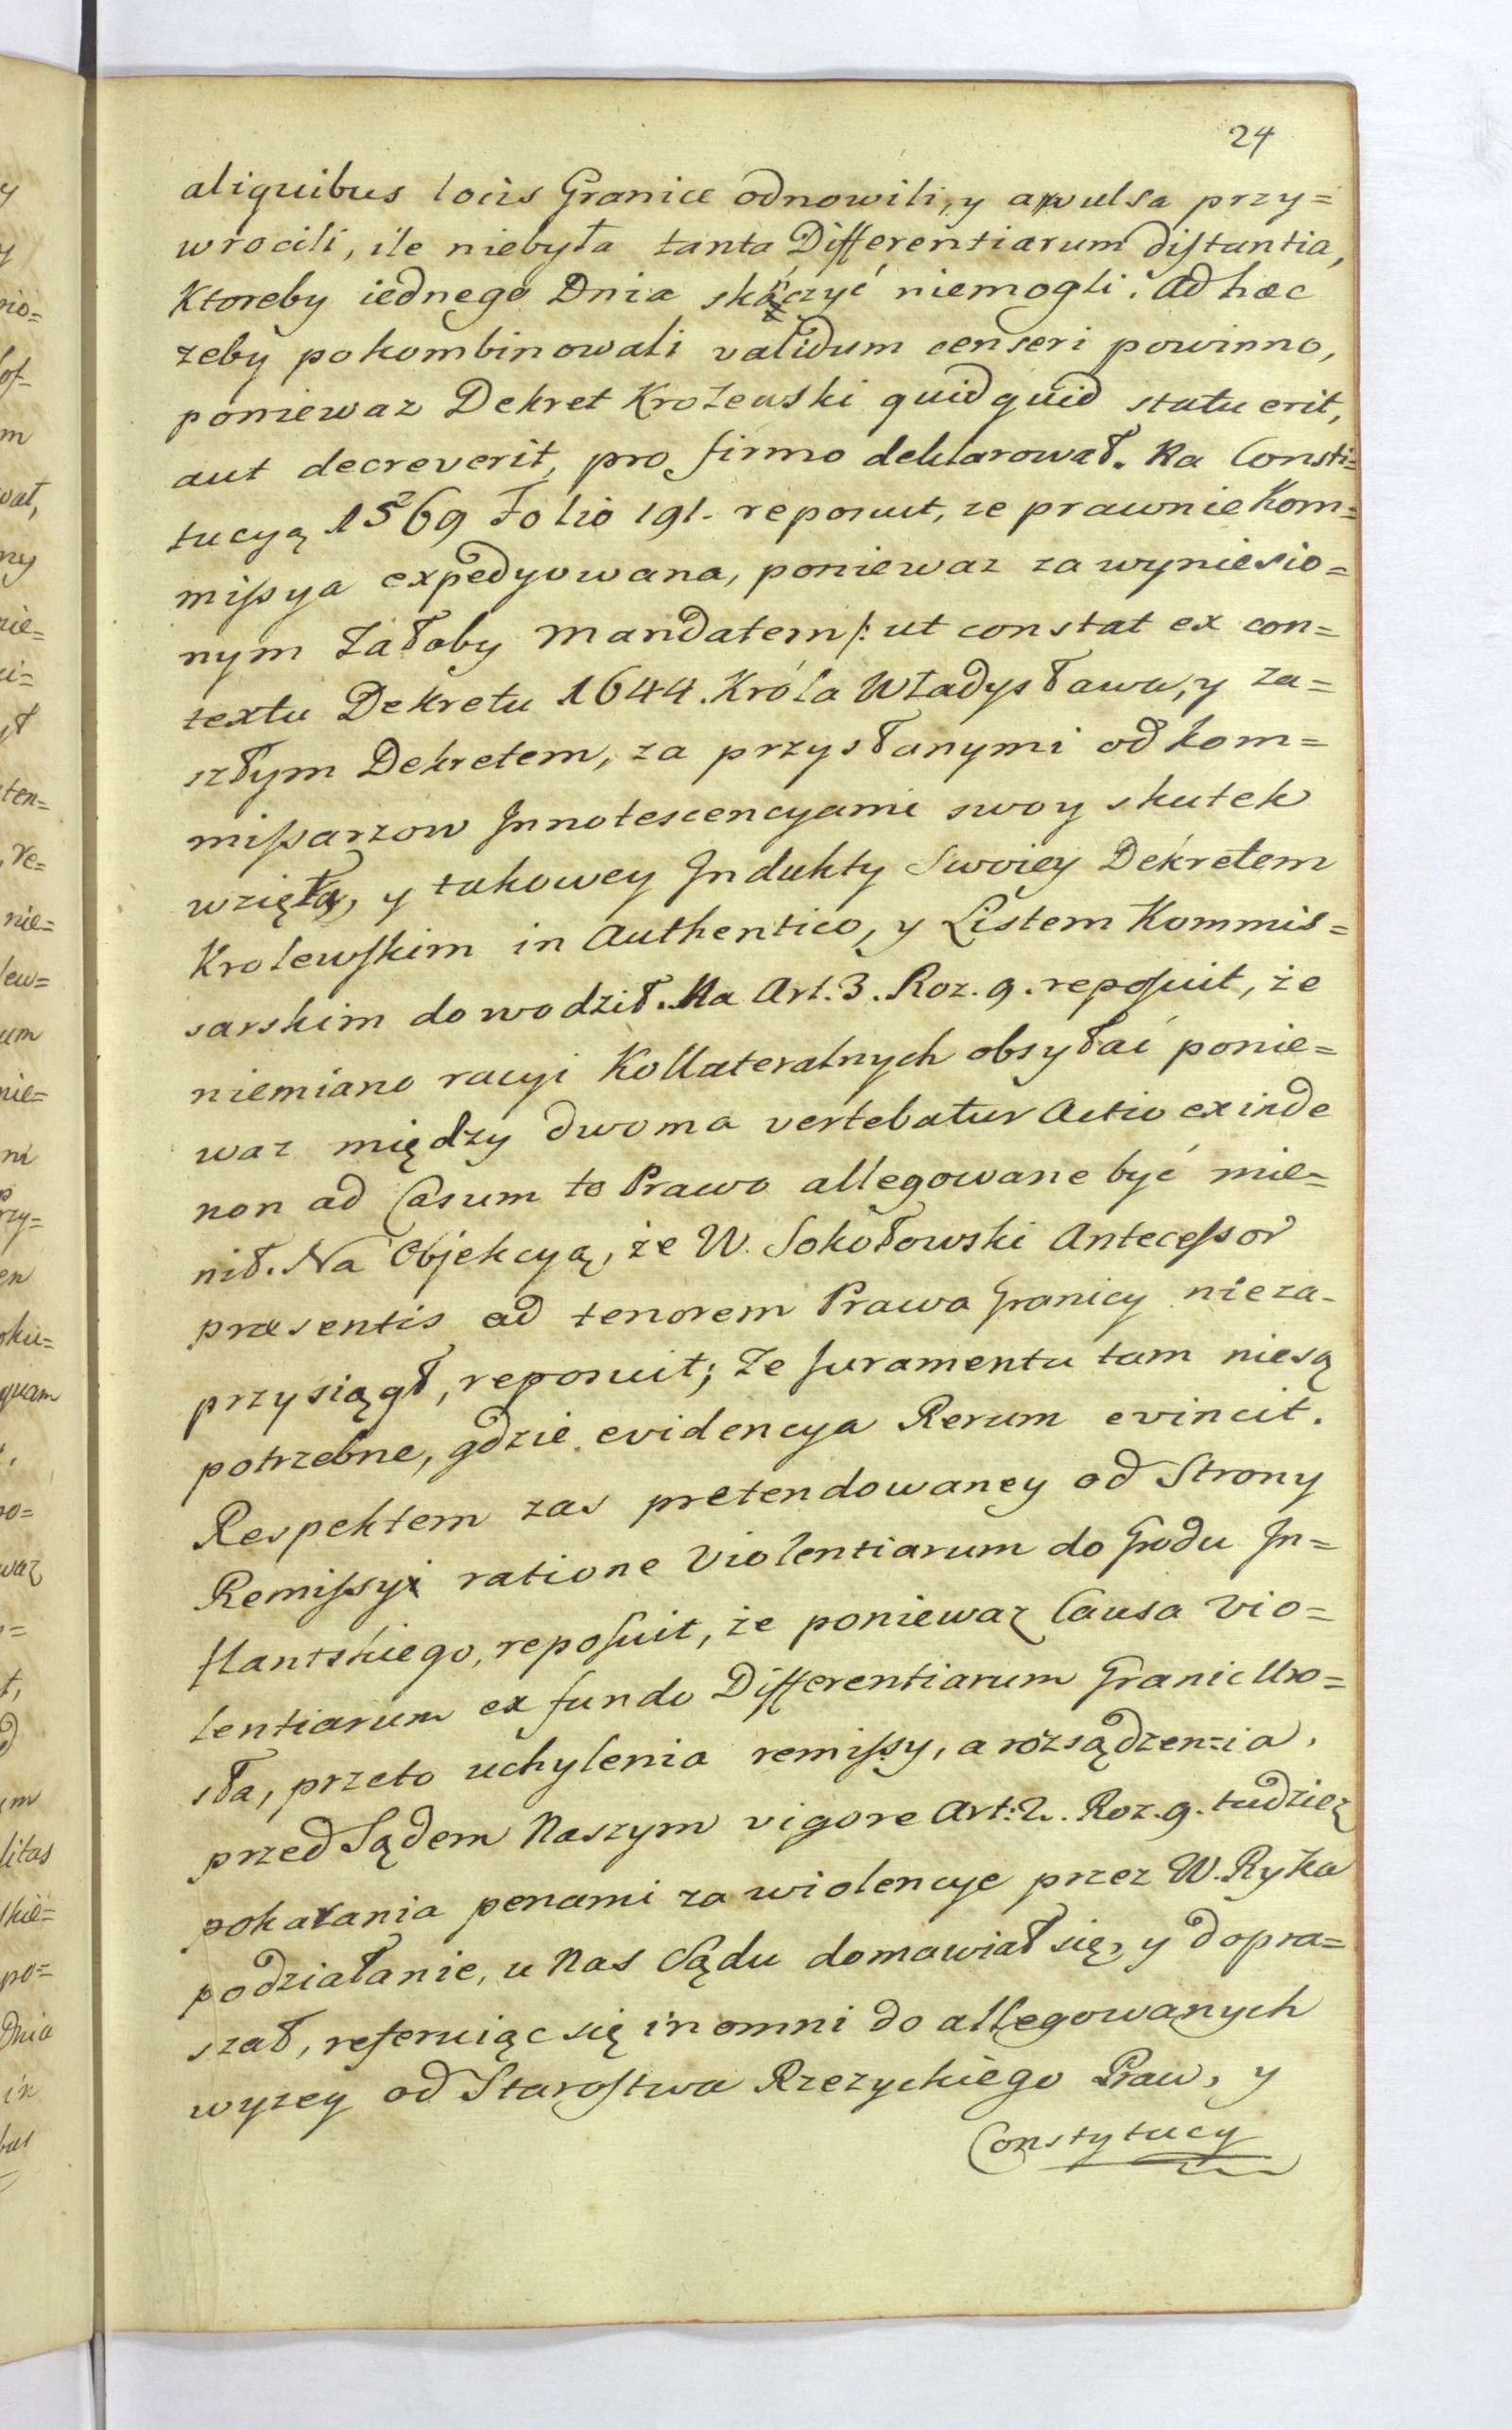 24
aliquibus locis Granice odnowili, y awulsa przy=
wrocili, ile niebyła tanta Differentiarum distantia,
Ktoreby iednego Dnia skończyć niemogli. Ad hæc
zeby pokombinowali validum censeri powinno,
poniewaz Dekret Krolewski quidquid statuerit,
aut decreverit, pro firmo deklarował. Na Consti=
tucyą 1569 Folio 191. reposuit, ze prawnie Kom=
missya expedyowana, poniewaz za wyniesio=
nym Załoby Mandatem /: ut constat ex con=
textu Dekretu 1644. Króla Władysława, y za=
szłym Dekretem, za przysłanymi od Kom=
missarzow Innotescencyami swoy skutek
wzięła, y takowey Indukty Swoiey Dekretem
Krolewskim in Authentico, y Listem Kommis=
sarskim dowodził. Na Art. 3. Roz. 9. reposuit, że
niemiano racyi Kollateralnych obsyłać ponie=
waz między dwoma vertebatur Actio exinde
non ad Casum to Prawo allegowane być mie=
nił. Na Objekcyą, że W. Sokołowski Antecessor
præsentis ad tenorem Prawa Granicy nieza=
przysiągł, reposuit; Ze Juramenta tam niesą
potrzebne, gdzie evidencya Rerum evincit.
Respektem zas pretendowaney od Strony
Remissyi ratione Violentiarum do Grodu In=
flantskiego, reposuit, że poniewaz Causa Vio=
lentiarum ex fundo Differentiarum Granic Uro=
sła, przeto uchylenia remissy, a rozsądzenia
przed Sądem Naszym vigore Art: 2. Roz. 9. tudziez
pokarania penami za wiolencye przez W. Ryka
podziałanie, u Nas Sądu domawiał się, y dopra=
szał, referuiąc się in omni do allegowanych
wyzey od Starostwa Rzezyckiego Praw, y
Constytucy